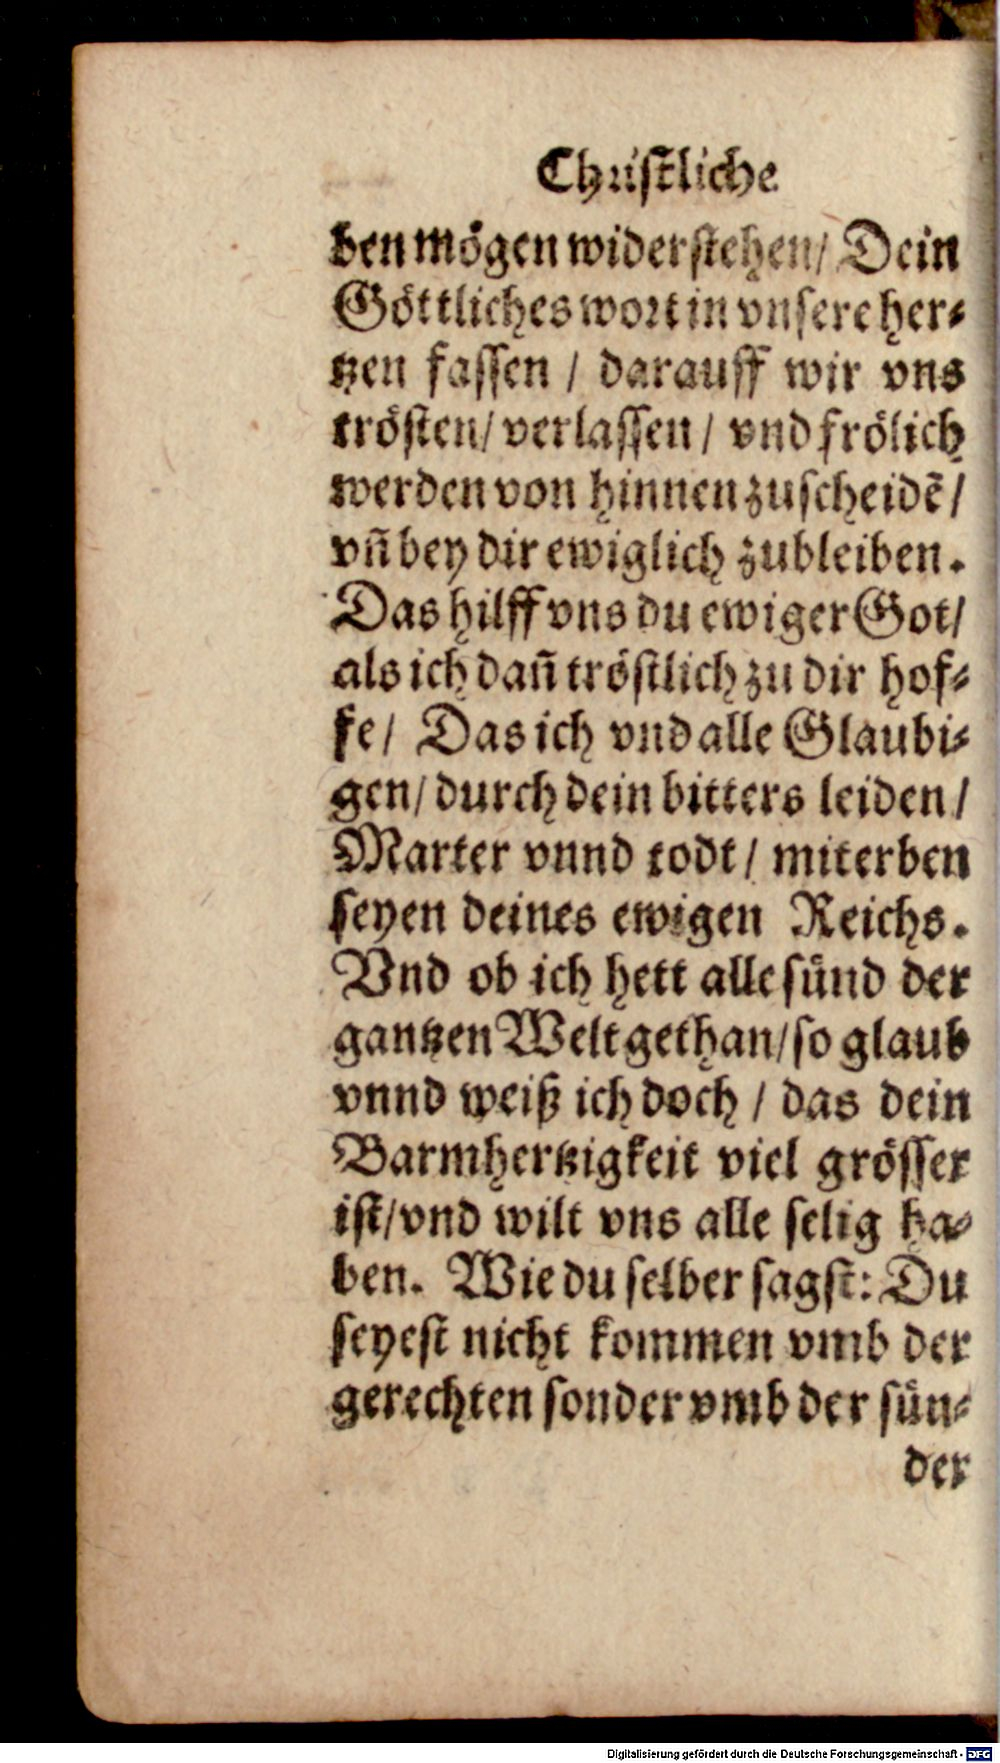 Christliche
ben mögen widerstehen / Dein
Göttliches wort in vnsere her⸗
tzen fassen / darauff wir vns
trösten / verlassen / vnd frölich
werden von hinnen zuscheidẽ /
vñ bey dir ewiglich zubleiben.
Das hilff vns du ewiger Got /
als ich dañ tröstlich zu dir hof⸗
fe / Das ich vnd alle Glaubi⸗
gen / durch dein bitters leiden /
Marter vnnd todt / miterben
seyen deines ewigen Reichs.
Vnd ob ich hett alle sünd der
gantzen Welt gethan / so glaub
vnnd weiß ich doch / das dein
Barmhertzigkeit viel grösser
ist / vnd wilt vns alle selig ha⸗
ben. Wie du selber sagst: Du
seyest nicht kommen vmb der
gerechten sonder vmb der sün⸗
der
Digitalisierung gefördert durch die Deutsche Forschungsgemeinschaft - DFG